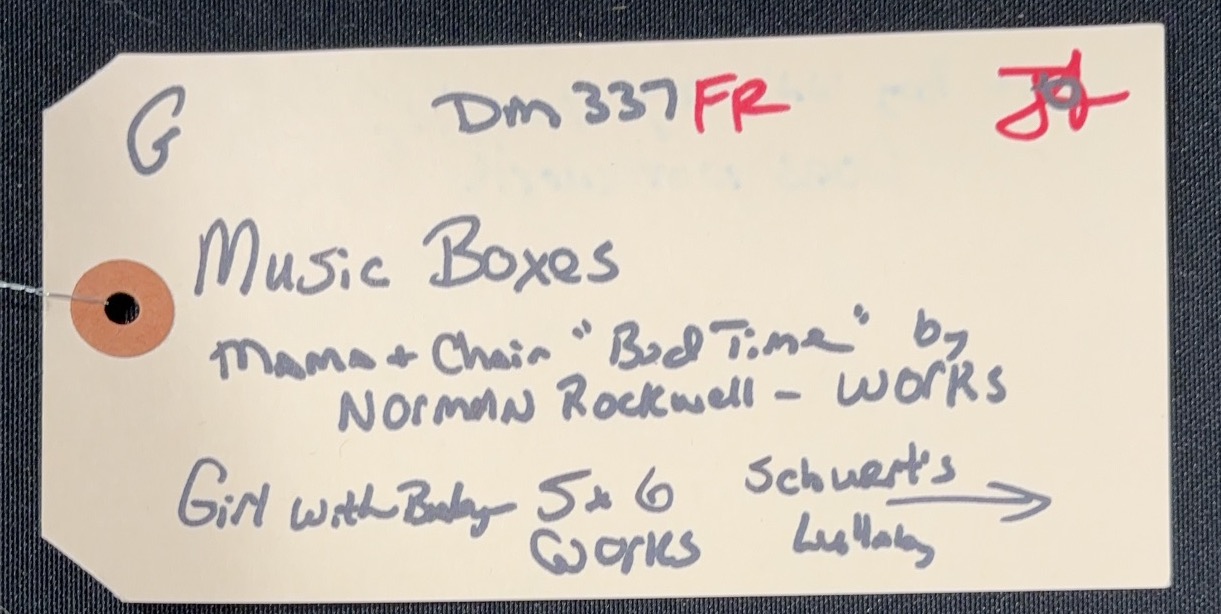 G DM 337 FR
Music Boxes
Mama + Chair "Bed Time" by
NORMAN Rockwell - WORKS
Girl with Baby 5x6 Schuert's
WORKS Lullaby